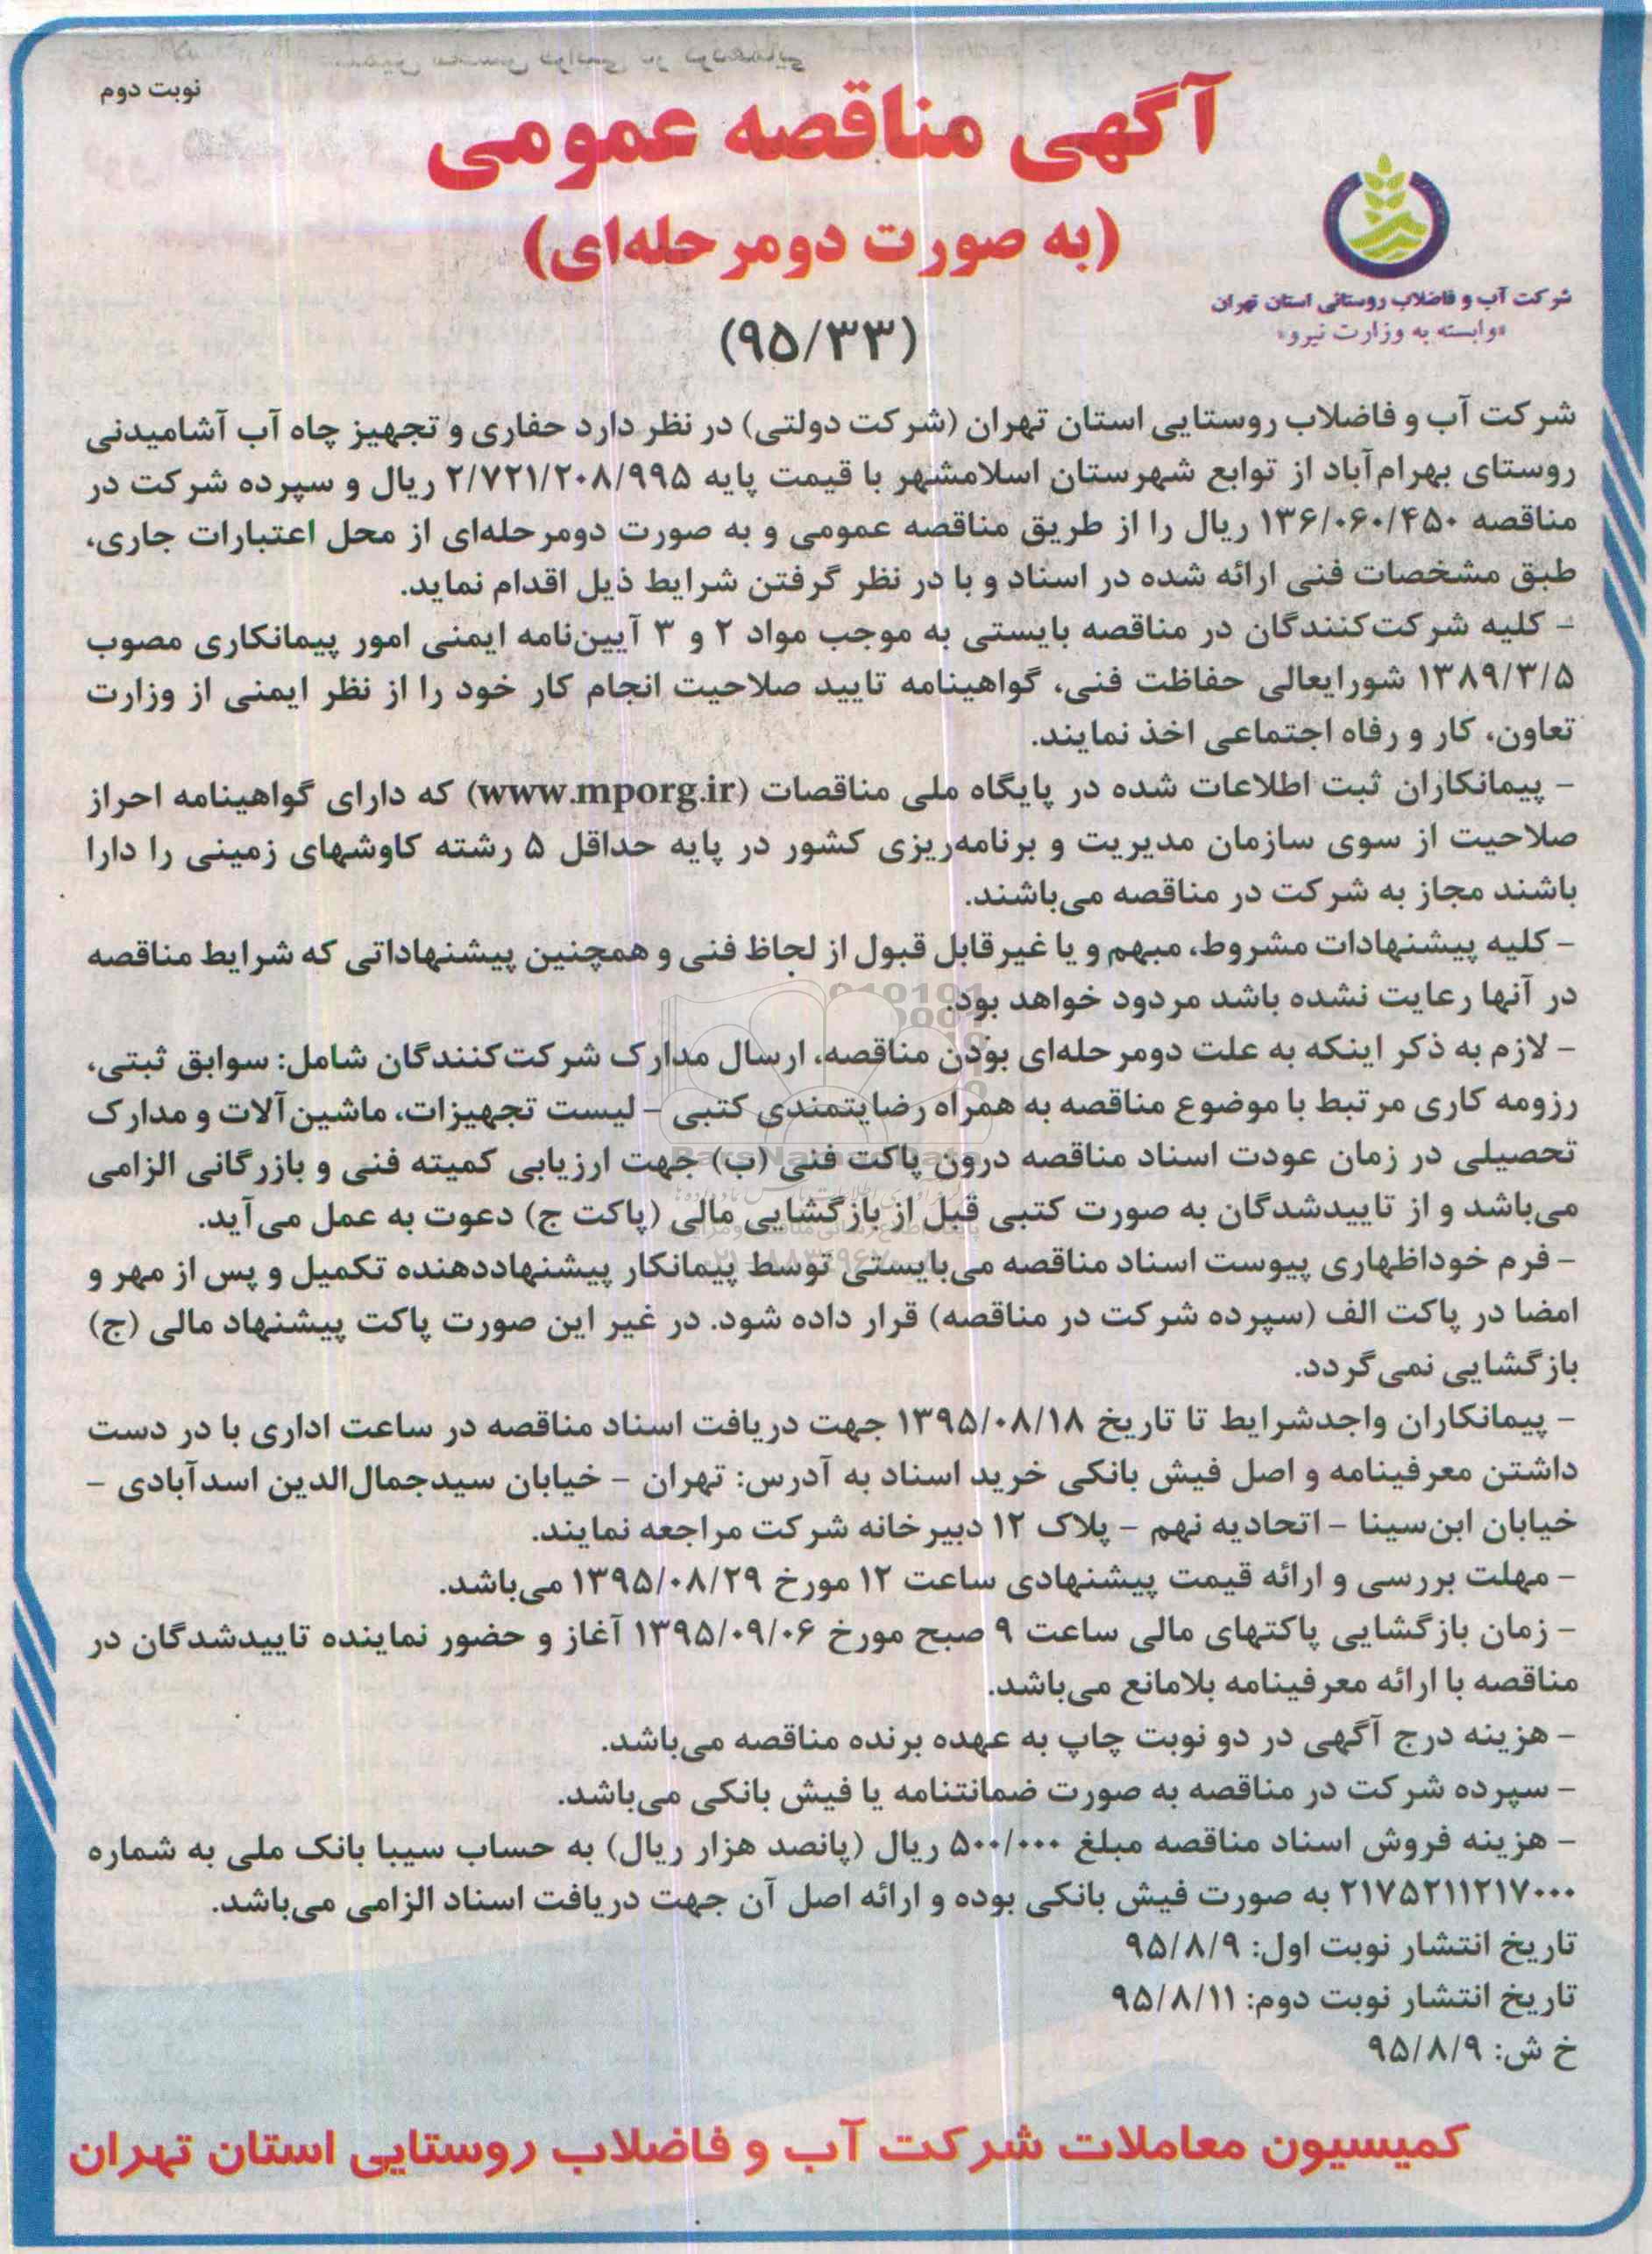 نوبت دوم
آگهی مناقصه عمومی
(به صورت دومرحله‌ای)
(۹۵/۳۳)
شرکت آب و فاضلاب روستائی استان تهران
«وابسته به وزارت نیرو»
شرکت آب و فاضلاب روستایی استان تهران (شرکت دولتی) در نظر دارد حفاری و تجهیز چاه آب آشامیدنی
روستای بهرام‌آباد از توابع شهرستان اسلامشهر با قیمت پایه ۲/۷۲۱/۲۰۸/۹۹۵ ریال و سپرده شرکت در
مناقصه ۱۳۶/۰۶۰/۴۵۰ ریال را از طریق مناقصه عمومی و به صورت دومرحله‌ای از محل اعتبارات جاری،
طبق مشخصات فنی ارائه شده در اسناد و با در نظر گرفتن شرایط ذیل اقدام نماید.
- کلیه شرکت‌کنندگان در مناقصه بایستی به موجب مواد ۲ و ۳ آیین‌نامه ایمنی امور پیمانکاری مصوب
۱۳۸۹/۳/۵ شورایعالی حفاظت فنی، گواهینامه تایید صلاحیت انجام کار خود را از نظر ایمنی از وزارت
تعاون، کار و رفاه اجتماعی اخذ نمایند.
- پیمانکاران ثبت اطلاعات شده در پایگاه ملی مناقصات (www.mporg.ir) که دارای گواهینامه احراز
صلاحیت از سوی سازمان مدیریت و برنامه‌ریزی کشور در پایه حداقل ۵ رشته کاوشهای زمینی را دارا
باشند مجاز به شرکت در مناقصه می‌باشند.
- کلیه پیشنهادات مشروط، مبهم و یا غیرقابل قبول از لحاظ فنی و همچنین پیشنهاداتی که شرایط مناقصه
در آنها رعایت نشده باشد مردود خواهد بود.
- لازم به ذکر اینکه به علت دومرحله‌ای بودن مناقصه، ارسال مدارک شرکت‌کنندگان شامل: سوابق ثبتی،
رزومه کاری مرتبط با موضوع مناقصه به همراه رضایتمندی کتبی - لیست تجهیزات، ماشین‌آلات و مدارک
تحصیلی در زمان عودت اسناد مناقصه درون پاکت فنی (ب) جهت ارزیابی کمیته فنی و بازرگانی الزامی
می‌باشد و از تاییدشدگان به صورت کتبی قبل از بازگشایی مالی (پاکت ج) دعوت به عمل می‌آید.
- فرم خوداظهاری پیوست اسناد مناقصه می‌بایستی توسط پیمانکار پیشنهاددهنده تکمیل و پس از مهر و
امضا در پاکت الف (سپرده شرکت در مناقصه) قرار داده شود. در غیر این صورت پاکت پیشنهاد مالی (ج)
بازگشایی نمی‌گردد.
- پیمانکاران واجدشرایط تا تاریخ ۱۳۹۵/۰۸/۱۸ جهت دریافت اسناد مناقصه در ساعت اداری با در دست
داشتن معرفینامه و اصل فیش بانکی خرید اسناد به آدرس: تهران - خیابان سیدجمال‌الدین اسدآبادی -
خیابان ابن‌سینا - اتحادیه نهم - پلاک ۱۲ دبیرخانه شرکت مراجعه نمایند.
- مهلت بررسی و ارائه قیمت پیشنهادی ساعت ۱۲ مورخ ۱۳۹۵/۰۸/۲۹ می‌باشد.
- زمان بازگشایی پاکتهای مالی ساعت ۹ صبح مورخ ۱۳۹۵/۰۹/۰۶ آغاز و حضور نماینده تاییدشدگان در
مناقصه با ارائه معرفینامه بلامانع می‌باشد.
- هزینه درج آگهی در دو نوبت چاپ به عهده برنده مناقصه می‌باشد.
- سپرده شرکت در مناقصه به صورت ضمانتنامه یا فیش بانکی می‌باشد.
- هزینه فروش اسناد مناقصه مبلغ ۵۰۰/۰۰۰ ریال (پانصد هزار ریال) به حساب سیبا بانک ملی به شماره
۲۱۷۵۲۱۱۲۱۷۰۰۰ به صورت فیش بانکی بوده و ارائه اصل آن جهت دریافت اسناد الزامی می‌باشد.
تاریخ انتشار نوبت اول: ۹۵/۸/۹
تاریخ انتشار نوبت دوم: ۹۵/۸/۱۱
خ ش: ۹۵/۸/۹
کمیسیون معاملات شرکت آب و فاضلاب روستایی استان تهران